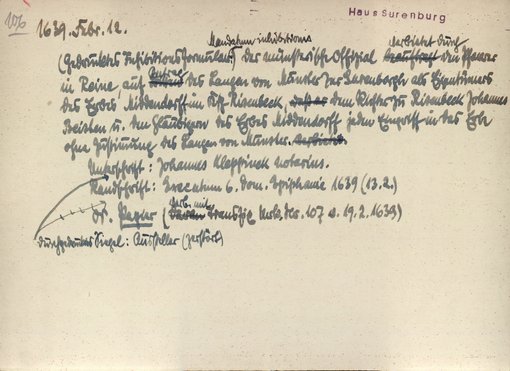 106
1639 Febr. 12.
Haus Surenburg
Mandatum inhibitionis
(Gedrucktes Inhibitionsformular) Der münsterische Offizial verbietet durch den Pfarrer
in Reine, auf des Langen von Münster zur Surenborgh, als Eigentümers
des Erbes Middendorff im Ksp. Risenbeck, dem Richter zu Risenbeck Johannes
Beisten u. den Gläubigern des Erbes Middendorff jeden Eingriff in das Erbe
ohne Zustimmung des Langen von Münster.
Unterschrift: Johannes Kleppinck notarius.
Randschrift: Executum 6. dom. Epiphanie 1639 (13.2.)
Or. Papier (Verb. mit Transfix Urk. Nr. 107 v. 19.2.1639)
durchgedrucktes Siegel: Aussteller (zerstört)